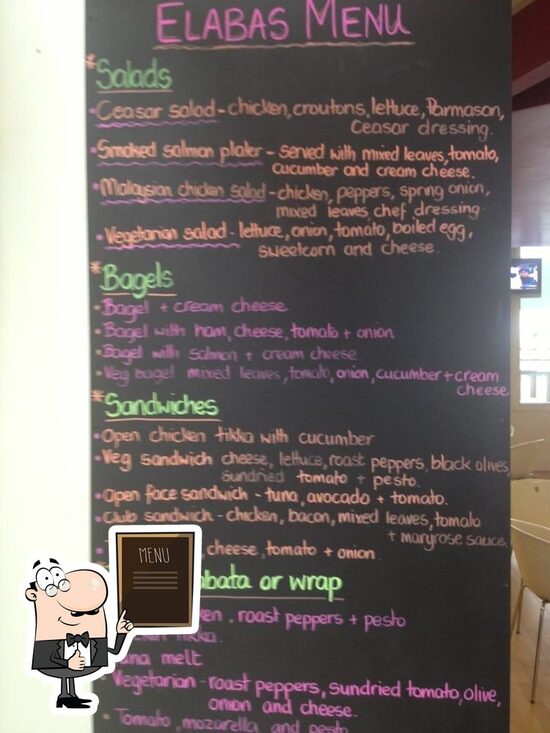 ELABAS MENU
*Salads
• Ceasar salad - chicken, croutons, lettuce, Parmasan,
Ceasar dressing.
• Smoked salmon plater - served with mixed leaves, tomato,
cucumber and cream cheese.
• Malaysian chicken salad - chicken, peppers, spring onion,
mixed leaves, chef dressing.
• Vegetarian salad - lettuce, onion, tomato, boiled egg,
sweetcorn and cheese.
*Bagels
• Bagel + cream cheese
• Bagel with ham, cheese, tomato + onion
• Bagel with salmon + cream cheese
• Veg bagel mixed leaves, tomato, onion, cucumber + cream
cheese
*Sandwiches
• Open chicken tikka with cucumber
• Veg sandwich cheese, lettuce, roast peppers, black olives,
sundried tomato + pesto.
• Open face sandwich - tuna, avocado + tomato.
• Club sandwich - chicken, bacon, mixed leaves, tomato
+ maryrose sauce.
, cheese, tomato + onion
MENU
abata or wrap
ken, roast peppers + pesto
tikka.
una melt
• Vegetarian - roast peppers, sundried tomato, olive,
onion and cheese.
• Tomato, mozarella and pesto